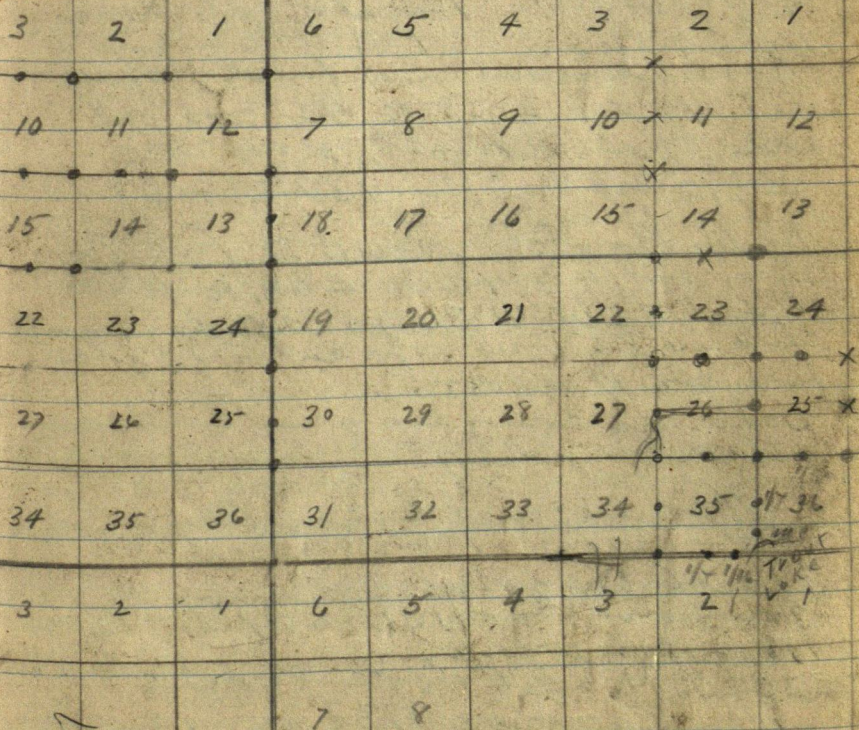 3 2 1 6 5 4 3 2 1
10 11 12 7 8 9 10 11 12
15 14 13 18 17 16 15 14 13
22 23 24 19 20 21 22 23 24
27 26 25 30 29 28 27 26 25
34 35 36 31 32 33 34 35 1/4 36
1/4 1/16 Trout
Lake
3 2 1 6 5 4 3 2 1
7 8